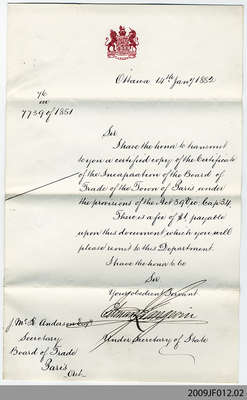 Ottawa 14th Jany 1882
76
on
7739 of 1881
Sir
I have the honor to transmit
to you a certified copy of the Certificate
of the Incorporation of the Board of
Trade of the Town of Paris under
the provisions of the Act 37 Vic: Cap: 34.
There is a fee of $1 payable
upon this document which you will
please remit to this Department.
I have the honor to be
Sir
Your obedient Servant
Edouard J. Langevin
Under Secretary of State
J Mc. Anderson Esqr
Secretary
Board of Trade
Paris
Ont.
2009JF012.02